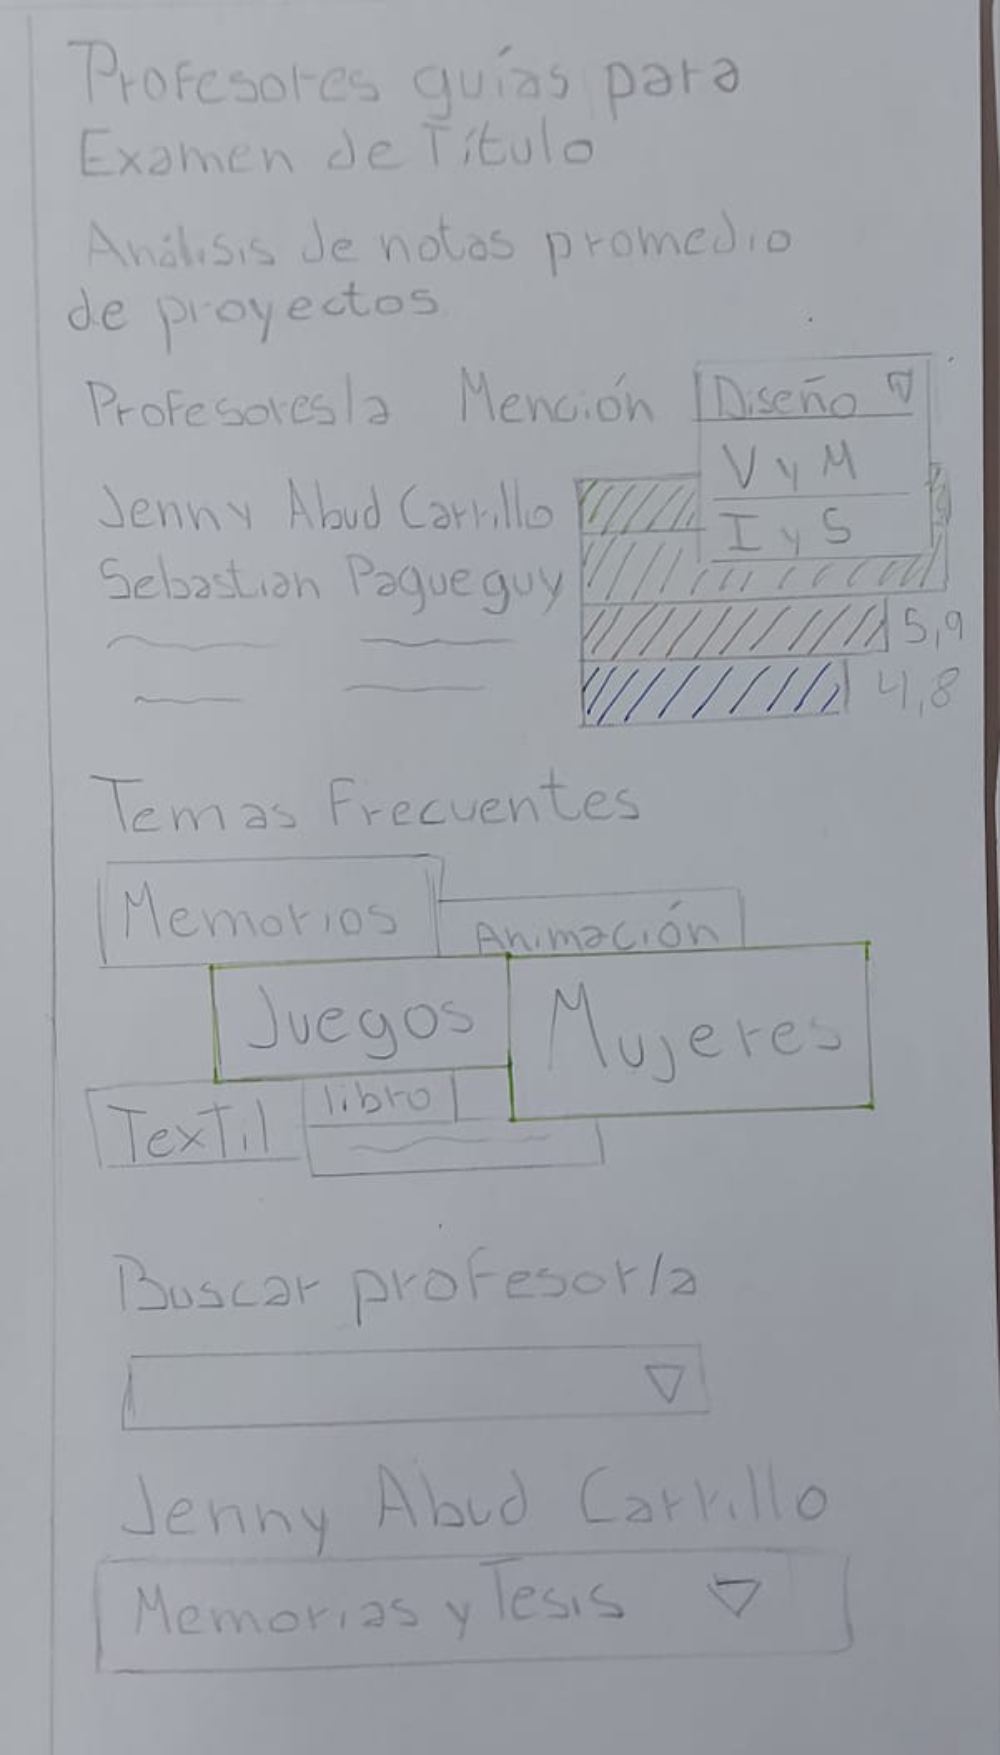 Profesores guías para
Examen de Título
Análisis de notas promedio
de proyectos
Profesores/a Mención Diseño
V y M
I y S
Jenny Abud Carrillo
Sebastian Pagueguy
5,9
4,8
Temas Frecuentes
Memorios
Animación
Juegos
Mujeres
Textil
libro
Buscar profesor/a
Jenny Abud Carrillo
Memorias y Tesis